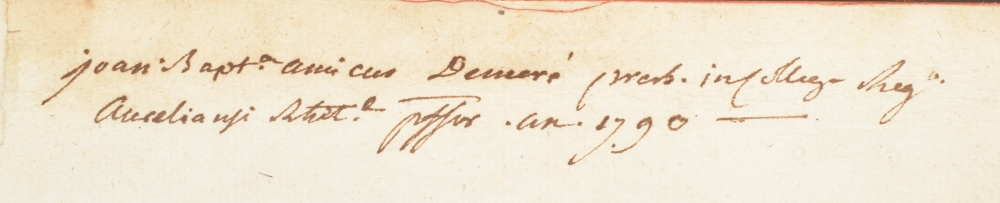 joan: Bapt.a amicus Demeré presb. in Colleg. Reg.o
Aureliansi Rhet.e pffor . an . 1790 —